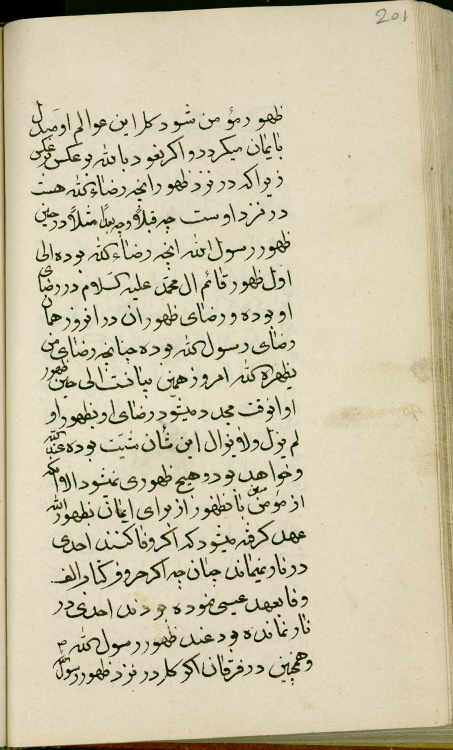 201
ظهور مؤمن شود كل اين عوالم او مبدل
بايمان ميكردد و اكر نعوذ بالله بر عكس بر عكس
زيرا كه در نزد ظهور انچه رضاء الله هست
در نزد اوست چه قبلاً و چه بعداً مثلاً در حين
ظهور رسول الله انچه رضاء الله بوده الى
اول ظهور قائم ال محمد عليه السلام در رضاى
او بوده و رضاى ظهور ان در افروز همان
رضاى رسول الله بوده چنانچه رضاى من
يظهره الله امروز همين بيانست الى حين ظهور
او انوقت مجدد ميشود رضاى او بظهور او
لم يزل و لا يزال اين شأن مثبت بوده عند الله
و خواهد بود و هيچ ظهورى نميشود الا و انكه
از مؤمنين بان ظهور از براى ايمان بظهور الله
عهد كرفته ميشود كه اكر وفا كنند احدى
در نار نميماند چنان چه اكر حروف كتاب الف
وفا بعهد عيسى نموده بودند احدى در
نار نمانده بود عند ظهور رسول الله ص
و همچنين در فرقان اكر كل در نزد ظهور رسول الله